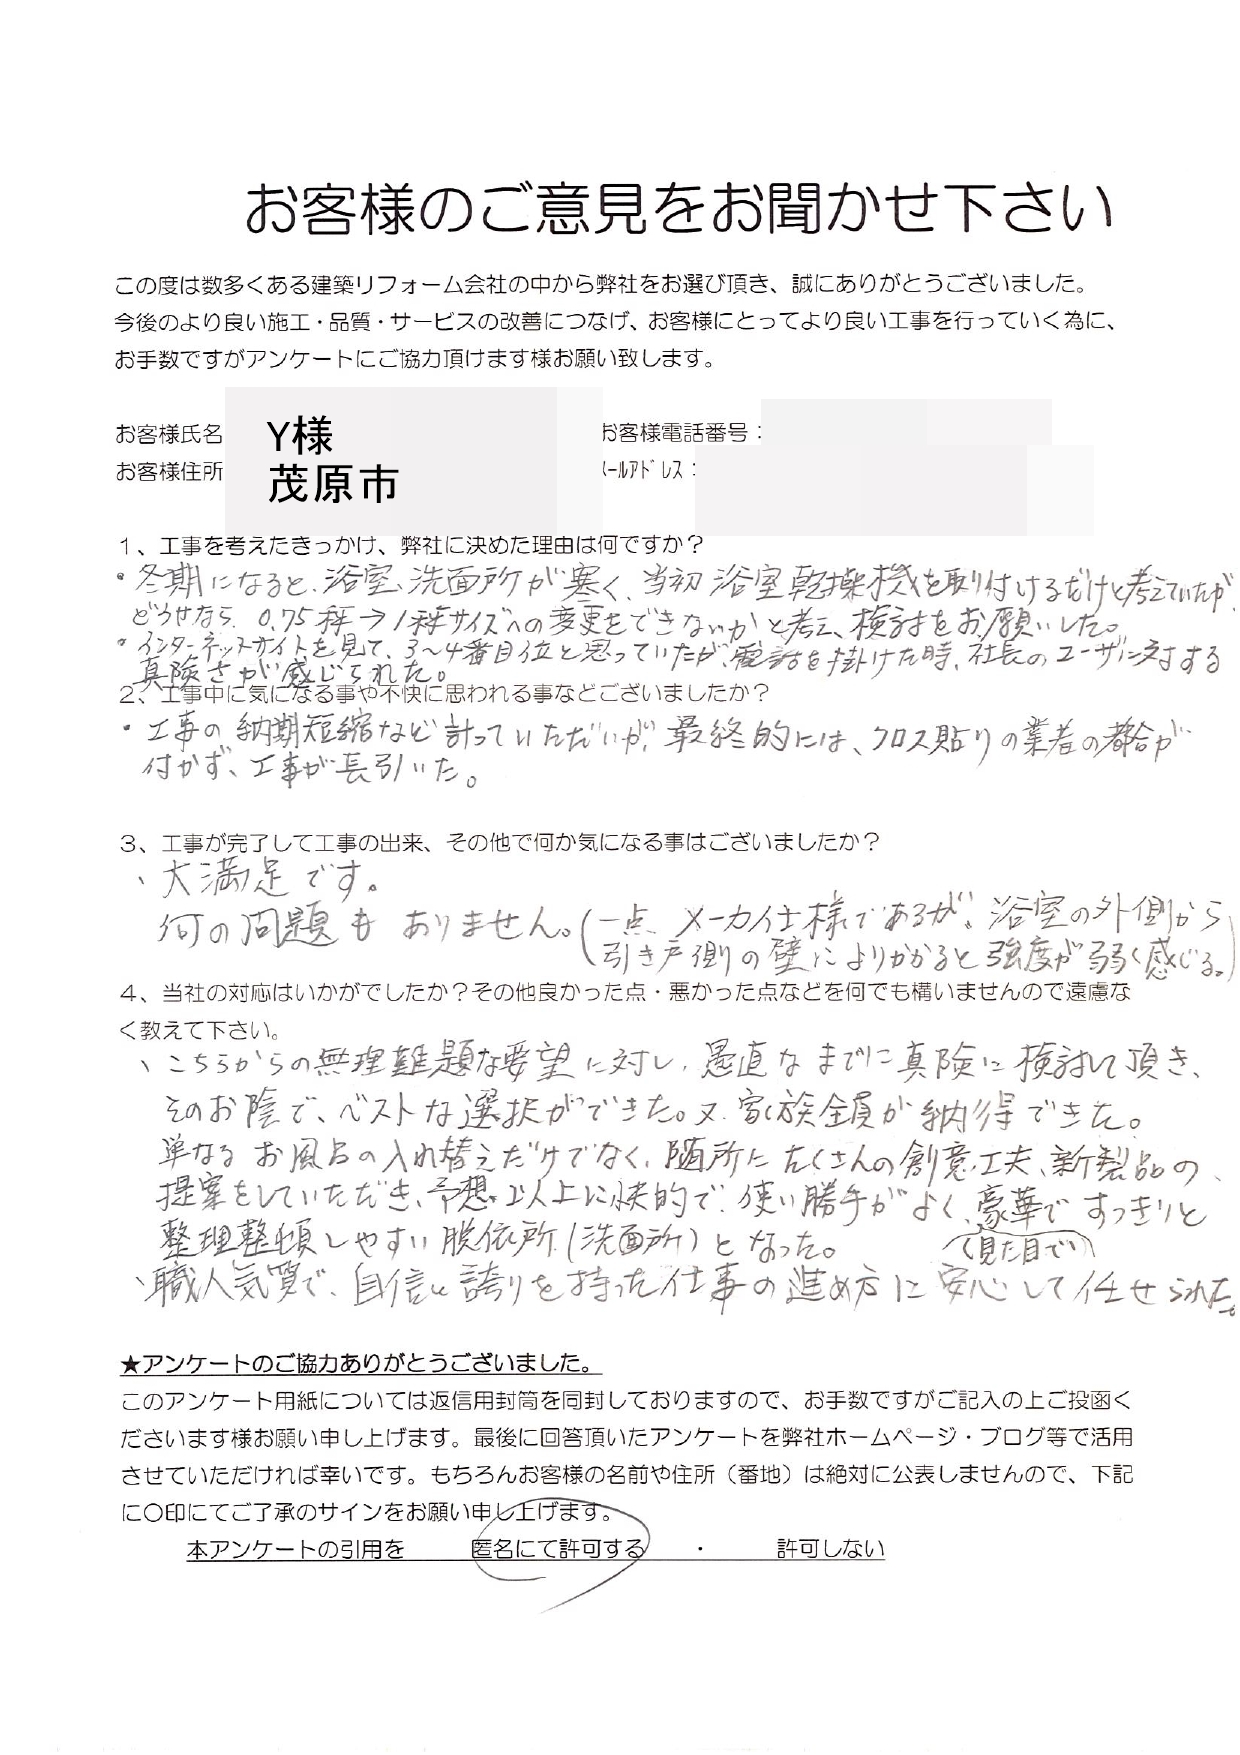 お客様のご意見をお聞かせ下さい
この度は数多くある建築リフォーム会社の中から弊社をお選び頂き、誠にありがとうございました。
今後のより良い施工・品質・サービスの改善につなげ、お客様にとってより良い工事を行っていく為に、
お手数ですがアンケートにご協力頂けます様お願い致します。
お客様氏名 Y様 お客様電話番号：
お客様住所 茂原市 ﾒｰﾙｱﾄﾞﾚｽ：
１、工事を考えたきっかけ、弊社に決めた理由は何ですか？
・冬期になると、浴室、洗面所が寒く、当初浴室乾燥機を取り付けるだけと考えていたが、
どうせなら、0.75坪→1坪サイズへの変更をできないかと考え、検討をお願いした。
・インターネットサイトを見て、3〜4番目位と思っていたが、電話を掛けた時、社長のユーザに対する
真険さが感じられた。
２、工事中に気になる事や不快に思われる事などございましたか？
・工事の納期短縮など計っていただいが、最終的には、クロス貼りの業者の都合が
付かず、工事が長引いた。
３、工事が完了して工事の出来、その他で何か気になる事はございましたか？
、大満足です。
何の問題もありません。(一点、メーカ仕様であるが、浴室の外側から
引き戸側の壁によりかかると強度が弱く感じる。)
４、当社の対応はいかがでしたか？その他良かった点・悪かった点などを何でも構いませんので遠慮な
く教えて下さい。
、こちらからの無理難題な要望に対し、愚直なまでに真険に検討して頂き、
そのお陰で、ベストな選択ができた。又、家族全員が納得できた。
単なるお風呂の入れ替えだけでなく、随所にたくさんの創意工夫、新製品の、
提案をしていただき、予想以上に快的で、使い勝手がよく、豪華ですっきりと
整理整頓しやすい脱依所(洗面所)となった。 (見た目で)
、職人気質で、自信と誇りを持った仕事の進め方に安心して任せられた。
★アンケートのご協力ありがとうございました。
このアンケート用紙については返信用封筒を同封しておりますので、お手数ですがご記入の上ご投函く
ださいます様お願い申し上げます。最後に回答頂いたアンケートを弊社ホームページ・ブログ等で活用
させていただければ幸いです。もちろんお客様の名前や住所（番地）は絶対に公表しませんので、下記
に〇印にてご了承のサインをお願い申し上げます。
本アンケートの引用を 匿名にて許可する ・ 許可しない